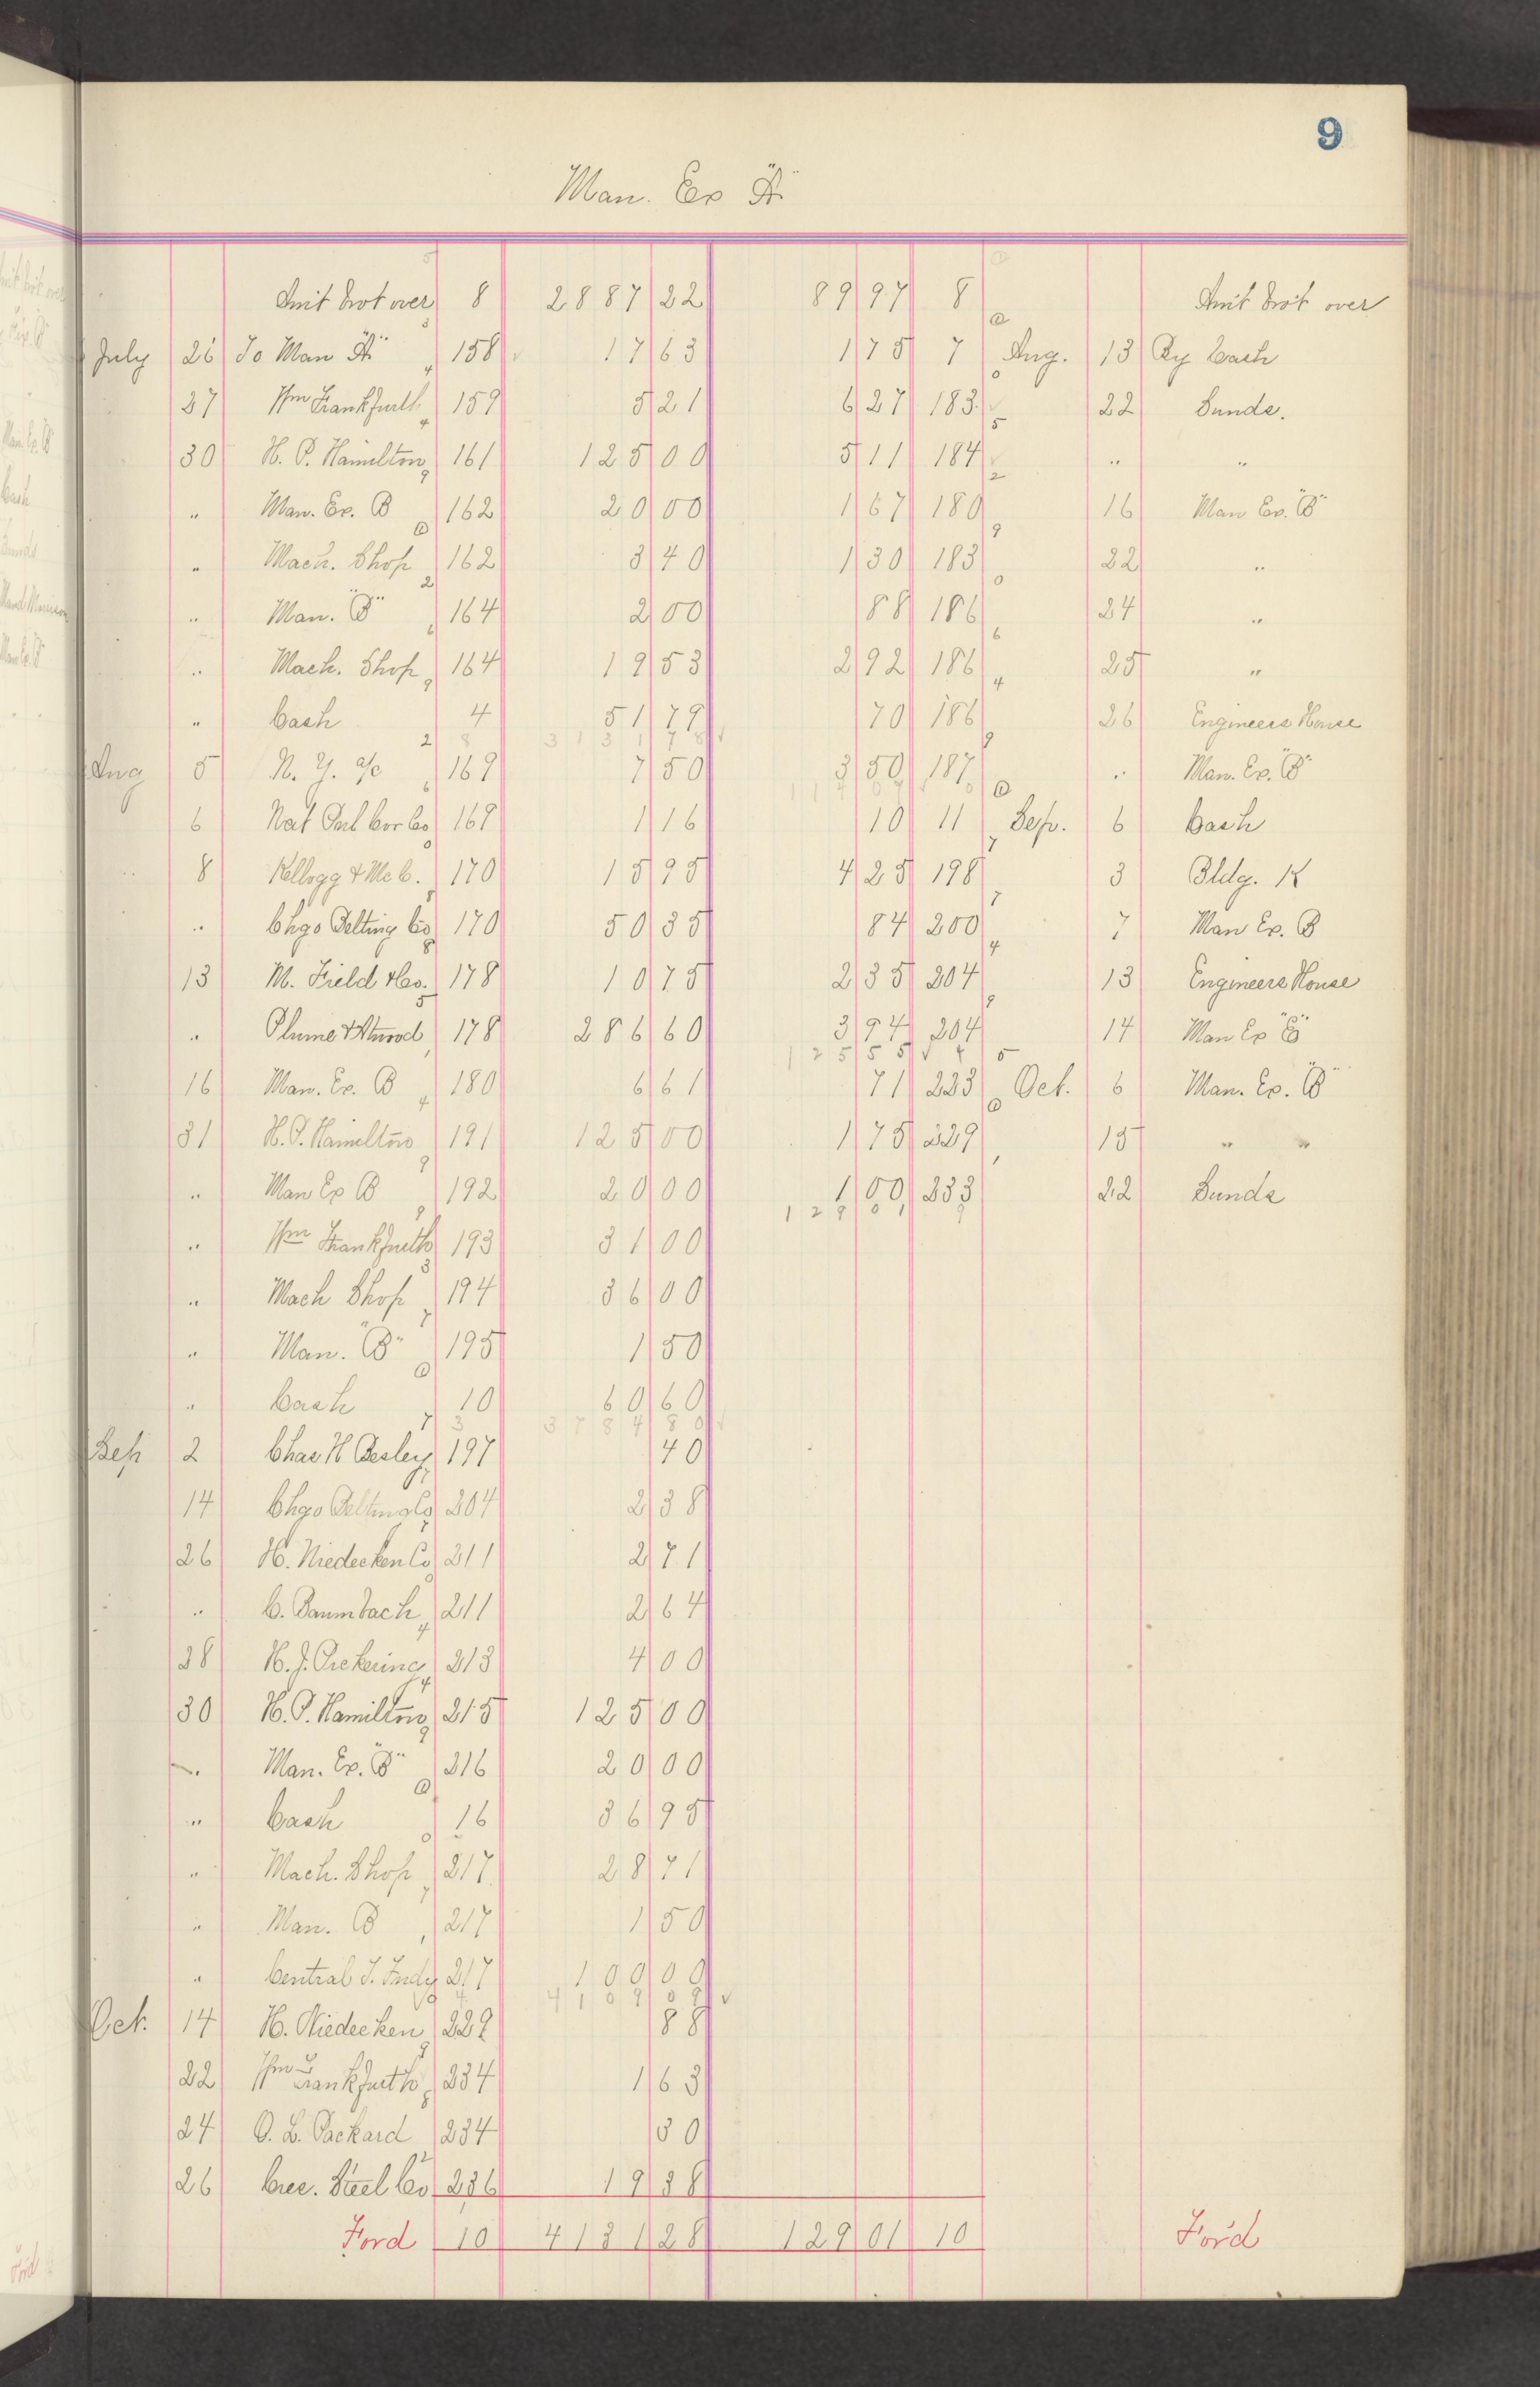 9
Man. Ex "A"
Amt brot over 8 2887 22 89 97 8 Amt brot over
July 26 To Man "A" 158 17 63 1 75 7 Aug. 13 By Cash
27 Wm Frankfurth 159 5 21 6 27 183 22 Sunds.
30 H. P. Hamilton 161 125 00 5 11 184 " "
" Man. Ex. B 162 20 00 1 67 180 16 Man Ex. "B"
" Mach. Shop 162 3 40 1 30 183 22 "
" Man. "B" 164 2 00 88 186 24 "
" Mach. Shop 164 19 53 2 92 186 25 "
" Cash 4 51 79 70 186 26 Engineers House
3131 78
Aug 5 N. Y. a/c 169 7 50 3 50 187 " Man. Ex. "B"
6 169 1 16 10 11 Sep. 6 Cash
8 Kellogg & Mc C. 170 15 95 4 25 198 3 Bldg. K
" Chgo Belting Co 170 50 35 84 200 7 Man Ex. B
13 M. Field & Co. 178 10 75 2 35 204 13 Engineers House
" Plume & Atwood 178 286 60 3 94 204 14 Man Ex "B"
125 55
16 Man. Ex. B 180 6 61 71 223 Oct. 6 Man. Ex. "B"
31 H. P. Hamilton 191 125 00 1 75 229 15 " "
" Man Ex B 192 20 00 1 00 233 22 Sunds
129 01
" Wm Frankfurth 193 31 00
" Mach Shop 194 36 00
" Man. "B" 195 1 50
" Cash 10 60 60
3784 80
Sep 2 Chas H Besley 197 40
14 Chgo Belting Co 204 2 38
26 H. Niedecken Co 211 2 71
" C. Baumbach 211 2 64
28 H. J. Pickering 213 4 00
30 H. P. Hamilton 215 125 00
" Man. Ex. "B" 216 20 00
" Cash 16 36 95
" Mach. Shop 217 28 71
" Man. B 217 1 50
" Central 217 100 00
4109 09
Oct. 14 H. Niedecken 229 88
22 Wm Frankfurth 234 1 63
24 O. L. Packard 234 30
26 Cres. Steel Co 236 19 38
Ford 10 4131 28 129 01 10 Ford